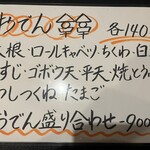 おでん 各140
大根・ロールキャベツ・ちくわ・白
すじ・ゴボウ天・平天・焼とうふ
つくね たまご
おでん盛り合わせ-900